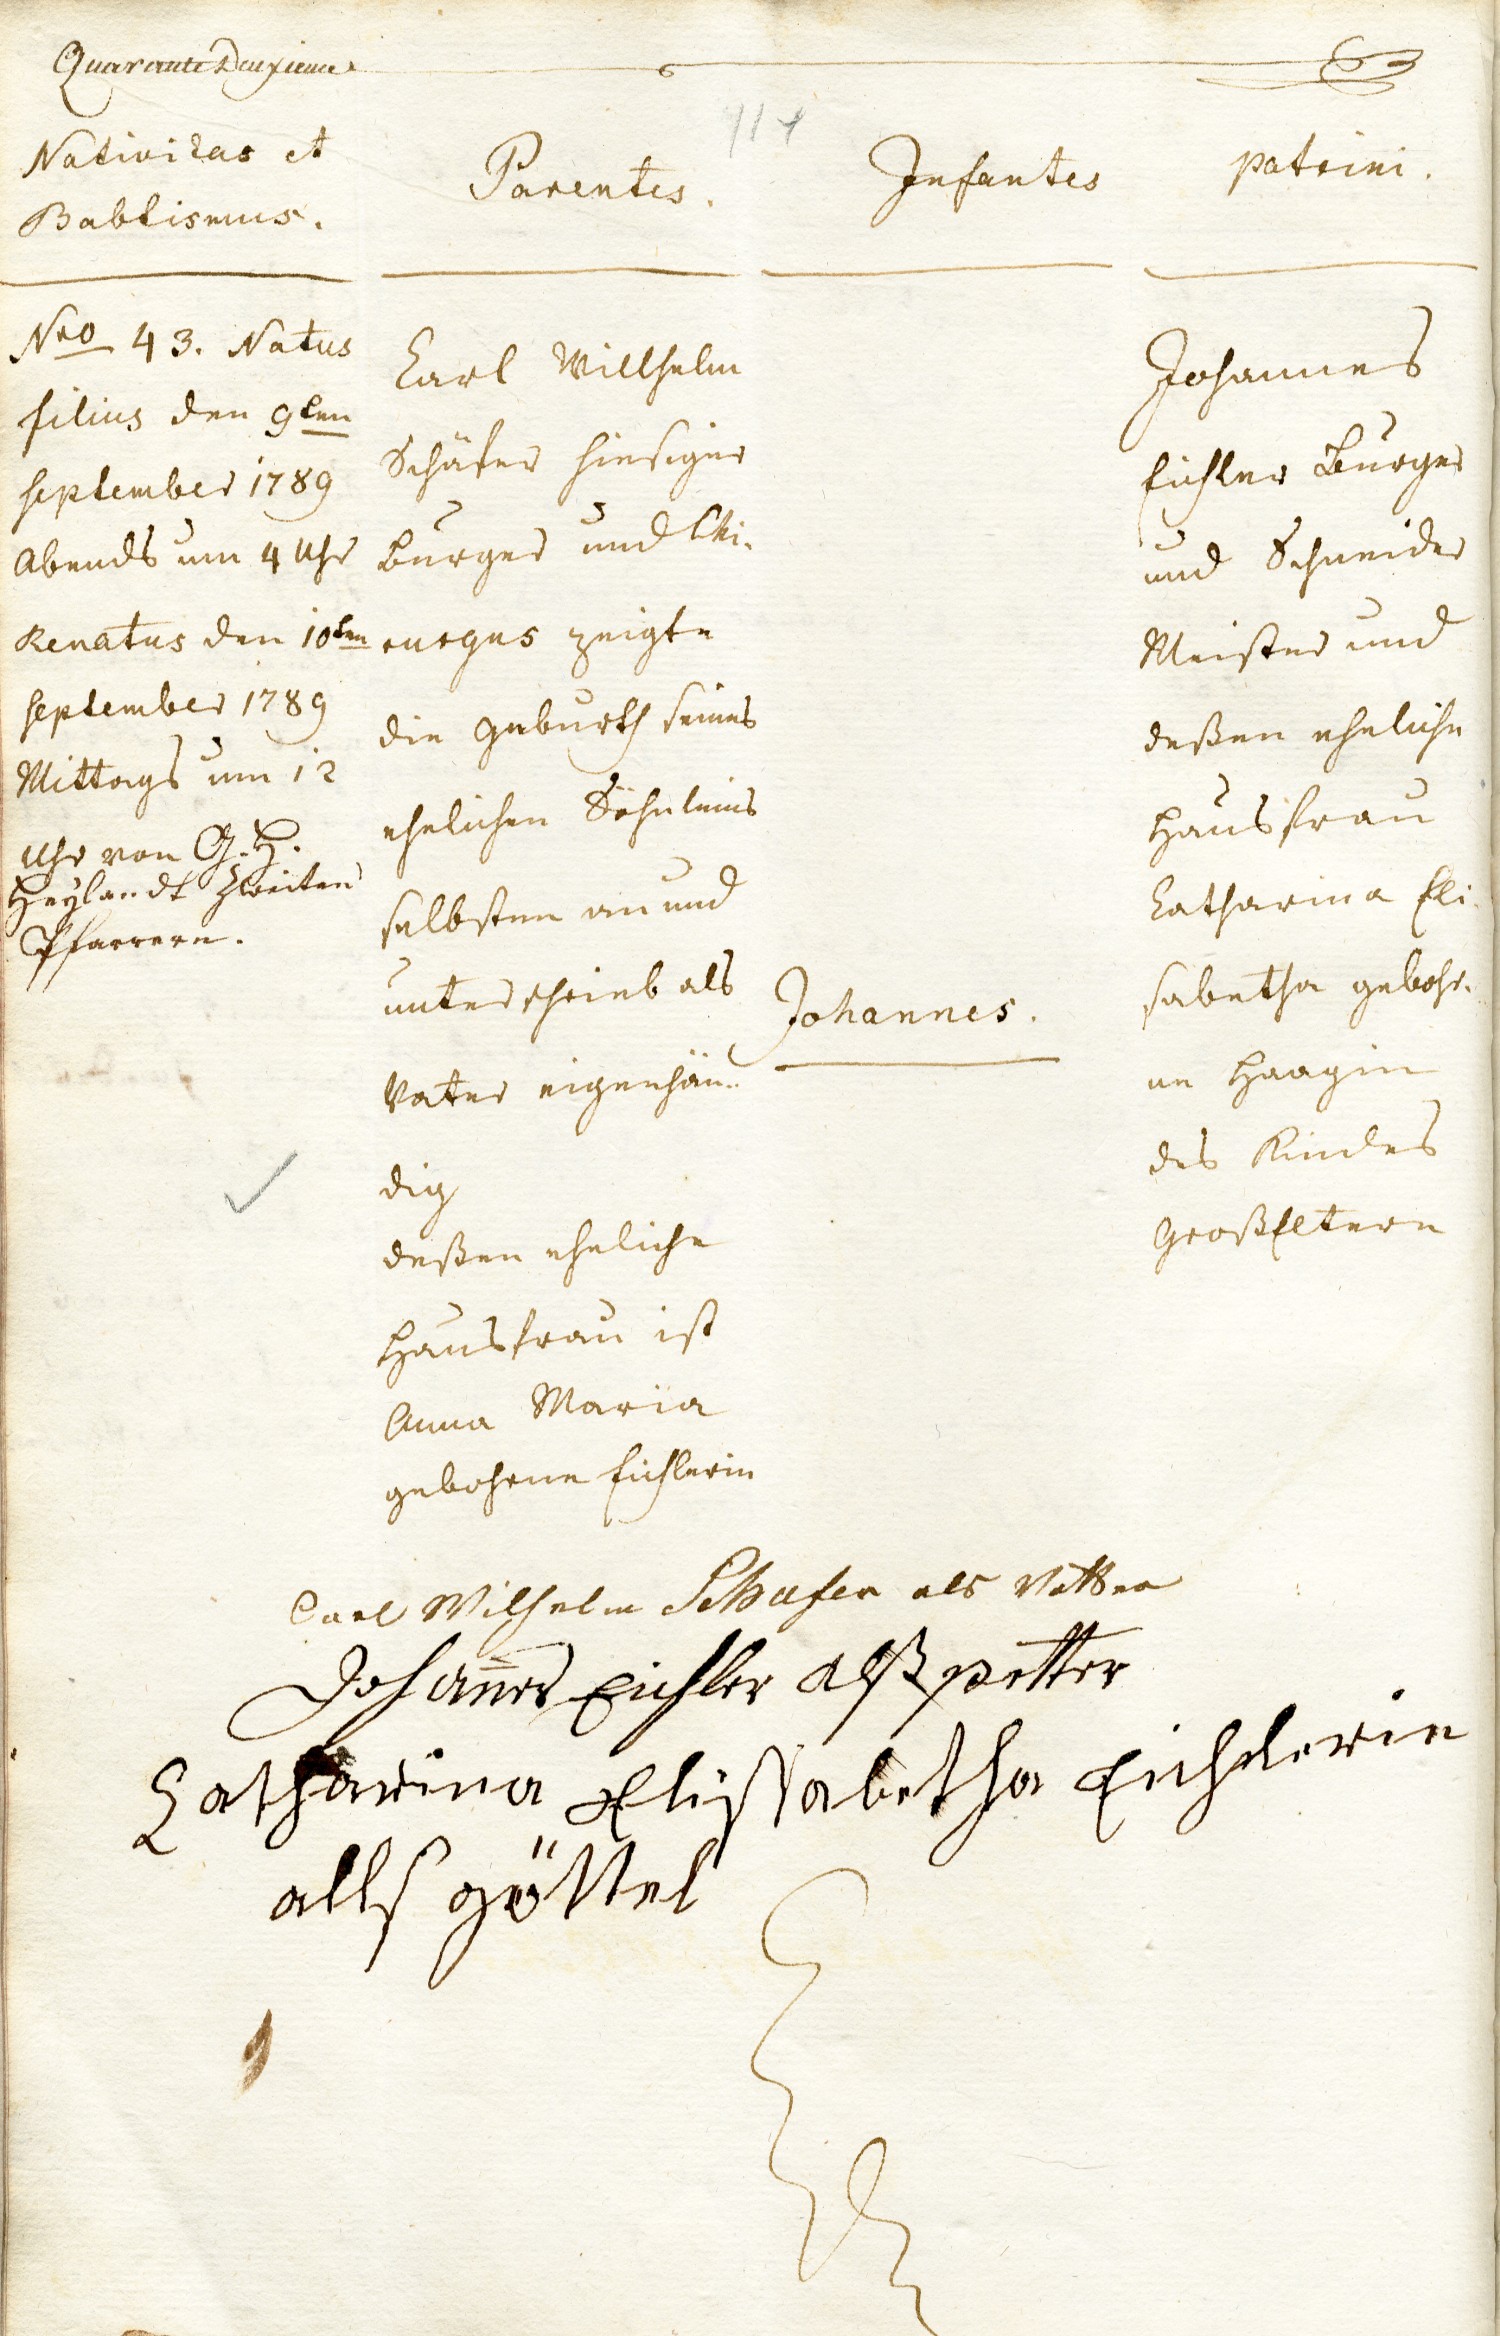 Quarante Deuxieme
117
Nativitas et
Babtismus.
Parentes.
Infantes
patrini.
Nro 43. Natus
filius den 9ten
September 1789
Abends um 4 Uhr
Renatus den 10ten
September 1789
Mittags um 12
Uhr von G. H.
Heylandt Zweiten
Pfarrern.
Carl Willhelm
Schäfer hiesiger
Burger und Chi-
rurgus zeigte
die Geburth seines
ehelichen Söhnleins
selbsten an und
unterschrieb als
Vater eigenhän-
dig
deßen eheliche
Hausfrau ist
Anna Maria
gebohrne Eichlerin
Johannes.
Johannes
Eichler Burger
und Schneider
Meister und
deßen eheliche
Hausfrau
Catharina Eli-
sabetha gebohr-
ne Haagin
des Kindes
GroßEltern
Carl Wilhelm Schäfer als Vatter
Johannes Eichler alß petter
Catharina Elissabetha Eichlerin
alls göttel